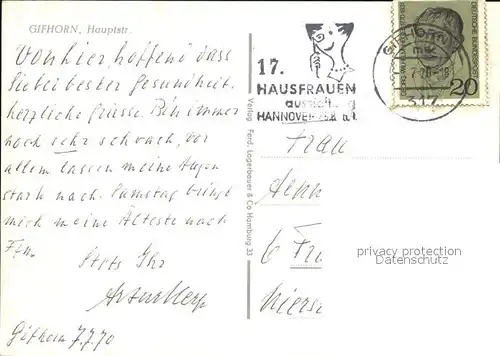 GIFHORN, Hauptstr.
Von hier, hoffend dass
Sie bei bester Gesundheit,
herzliche Grüsse. Bin immer
noch sehr schwach, vor
allem lassen meine Augen
stark nach. Samstag bringt
mich meine Älteste nach
Ffm.
Stets Ihr
Gifhorn 7.7.70
Verlag Ferd. Lagerbauer & Co Hamburg 33
17.
HAUSFRAUEN
HANNOVER
GIFHORN
317
DEUTSCHE BUNDESPOST
20
Frau
6 Ff
privacy protection
watermark